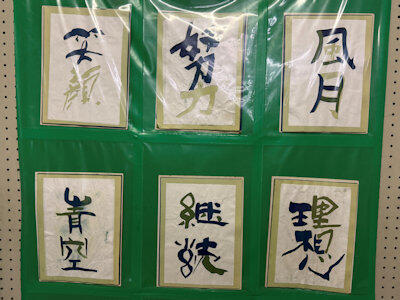 笑顔
努力
風月
青空
継続
理想